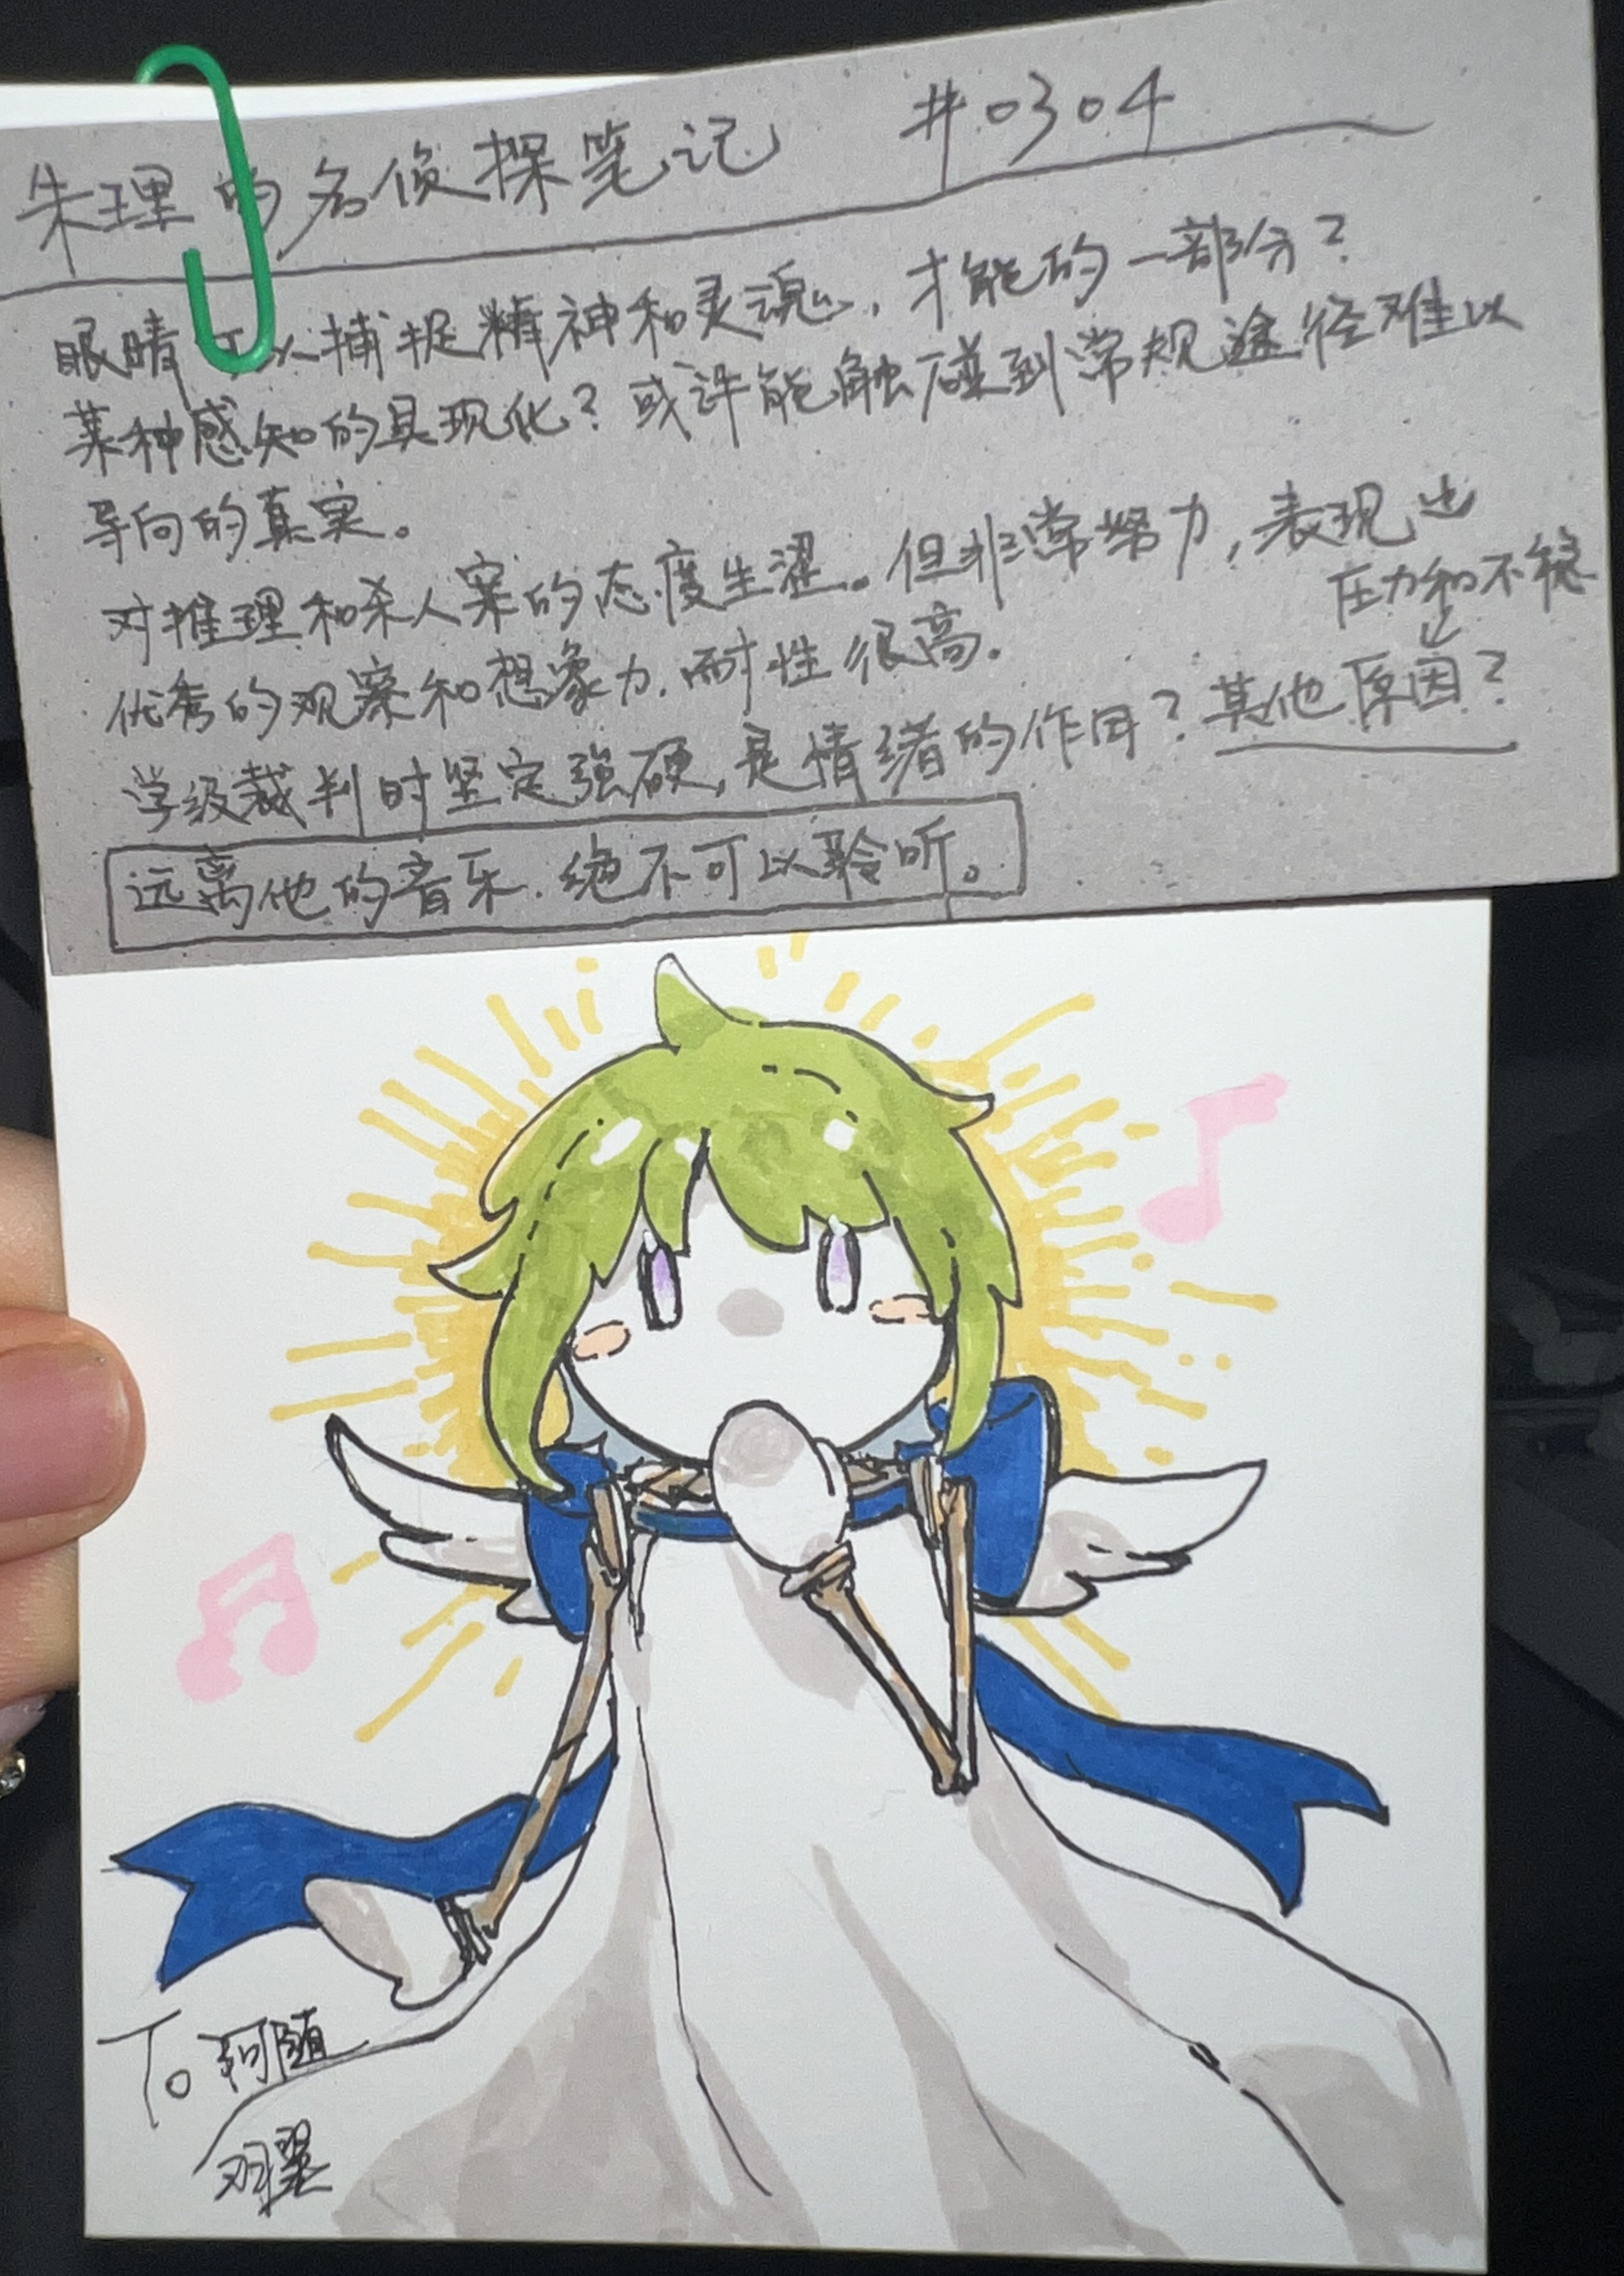 朱理的名侦探笔记 #0304
眼睛可以捕捉精神和灵魂，才能的一部分？
某种感知的具现化？或许能触碰到常规途径难以
导向的真实。
对推理和杀人案的态度生涩。但非常努力，表现出
优秀的观察和想象力，耐性很高。
压力和不稳
学级裁判时坚定强硬，是情绪的作用？其他原因？
远离他的音乐，绝不可以聆听。
To 阿随